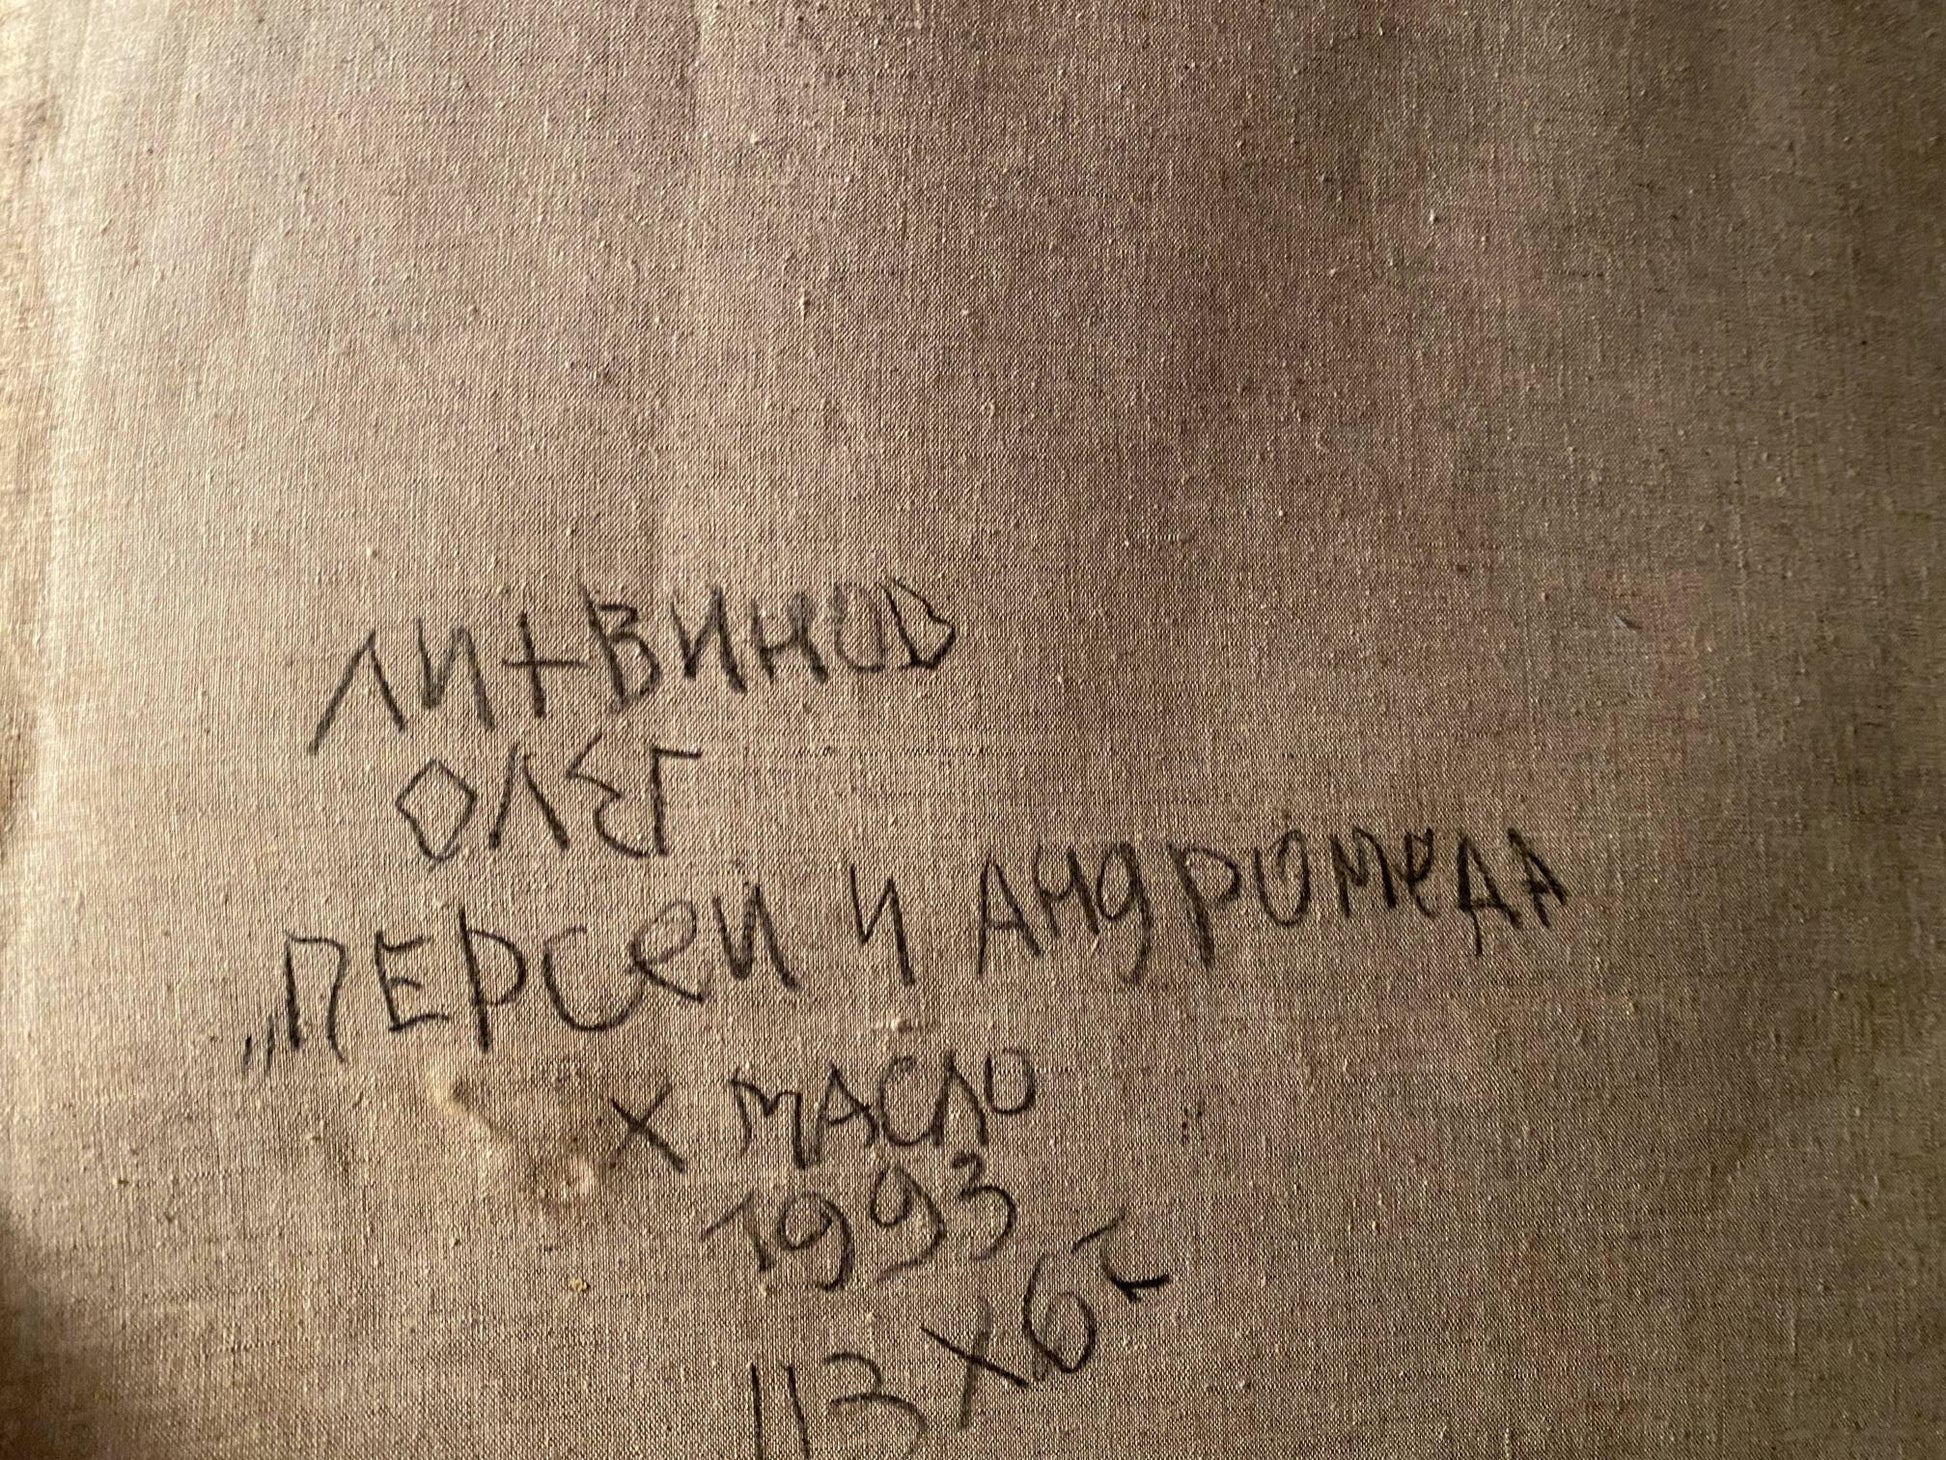 ЛИТВИНОВ
ОЛЕГ
„ПЕРСЕЙ И АНДРОМЕДА
Х МАСЛО
1993
113 Х